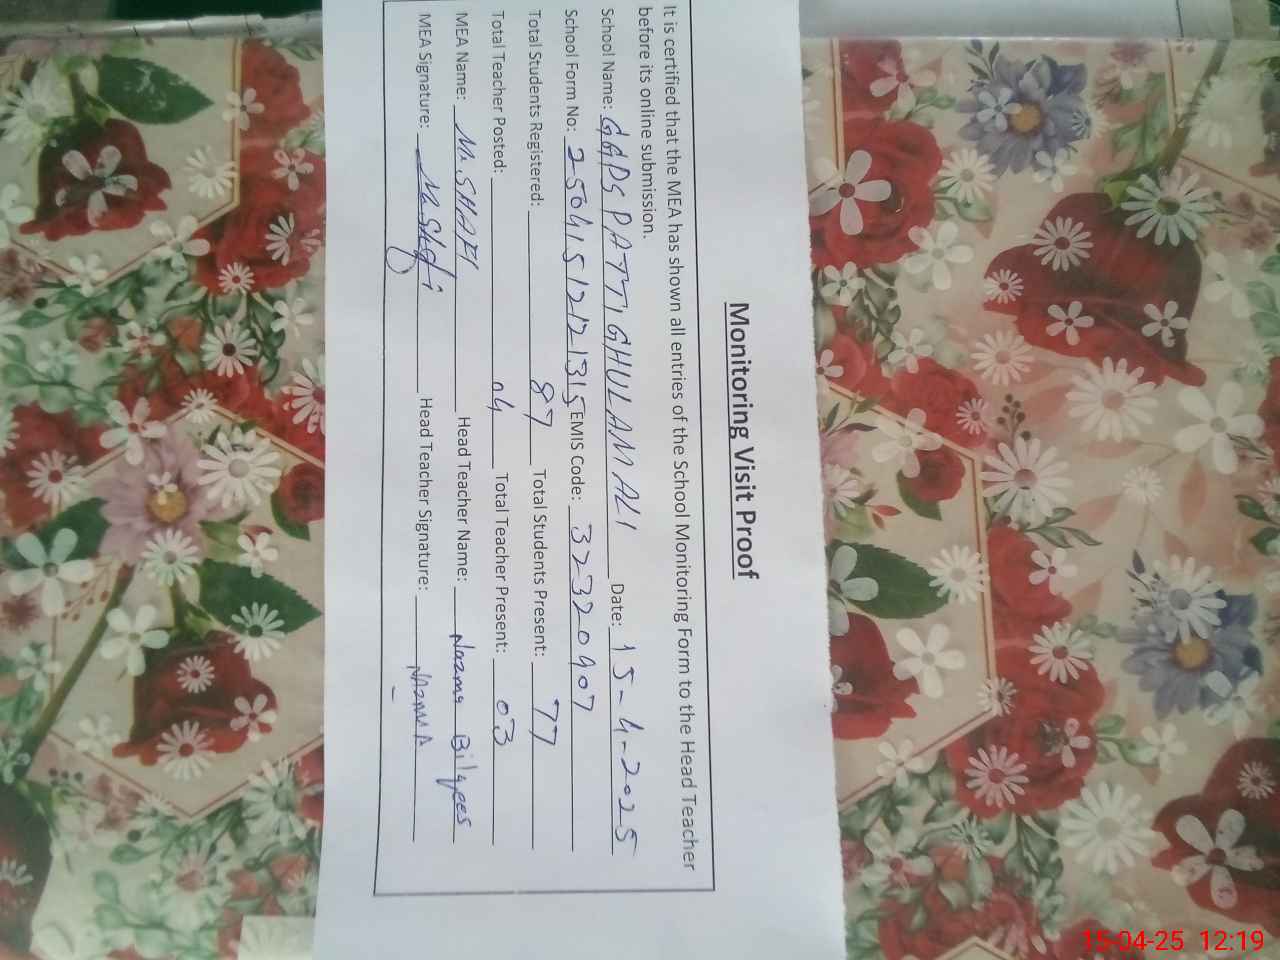 Monitoring Visit Proof
It is certified that the MEA has shown all entries of the School Monitoring Form to the Head Teacher
before its online submission.
School Name: GGPS PATTI GHULAM ALI Date: 15-4-2025
School Form No: EMIS Code: 32320907
Total Students Registered: 87 Total Students Present: 77
Total Teacher Posted: 04 Total Teacher Present: 03
MEA Name: M. SHAFI Head Teacher Name: Nazma Bilqees
MEA Signature: M. Shafi Head Teacher Signature: NAZMA
15-04-25 12:19